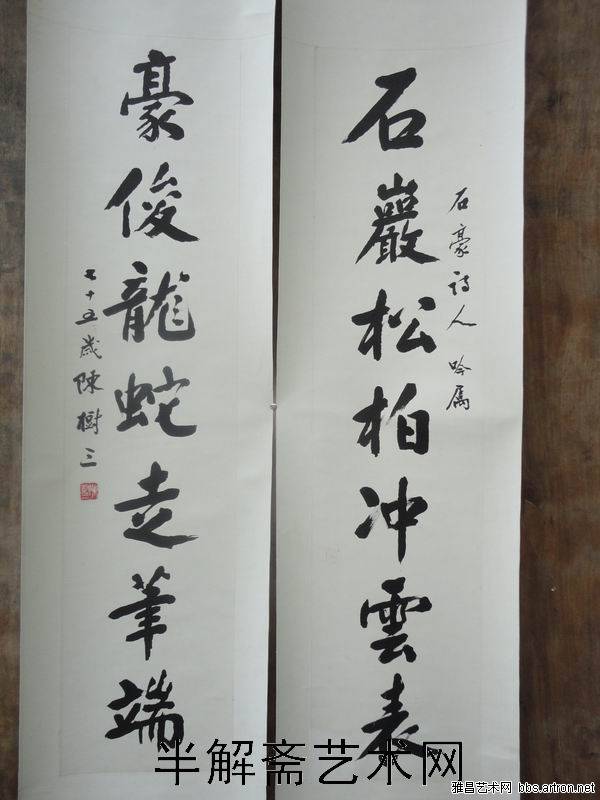 石巖松柏冲雲表
石豪詩人吟属
豪俊龍蛇走筆端
七十五歲陳樹三
半解斋艺术网
雅昌艺术网 bbs.artron.net